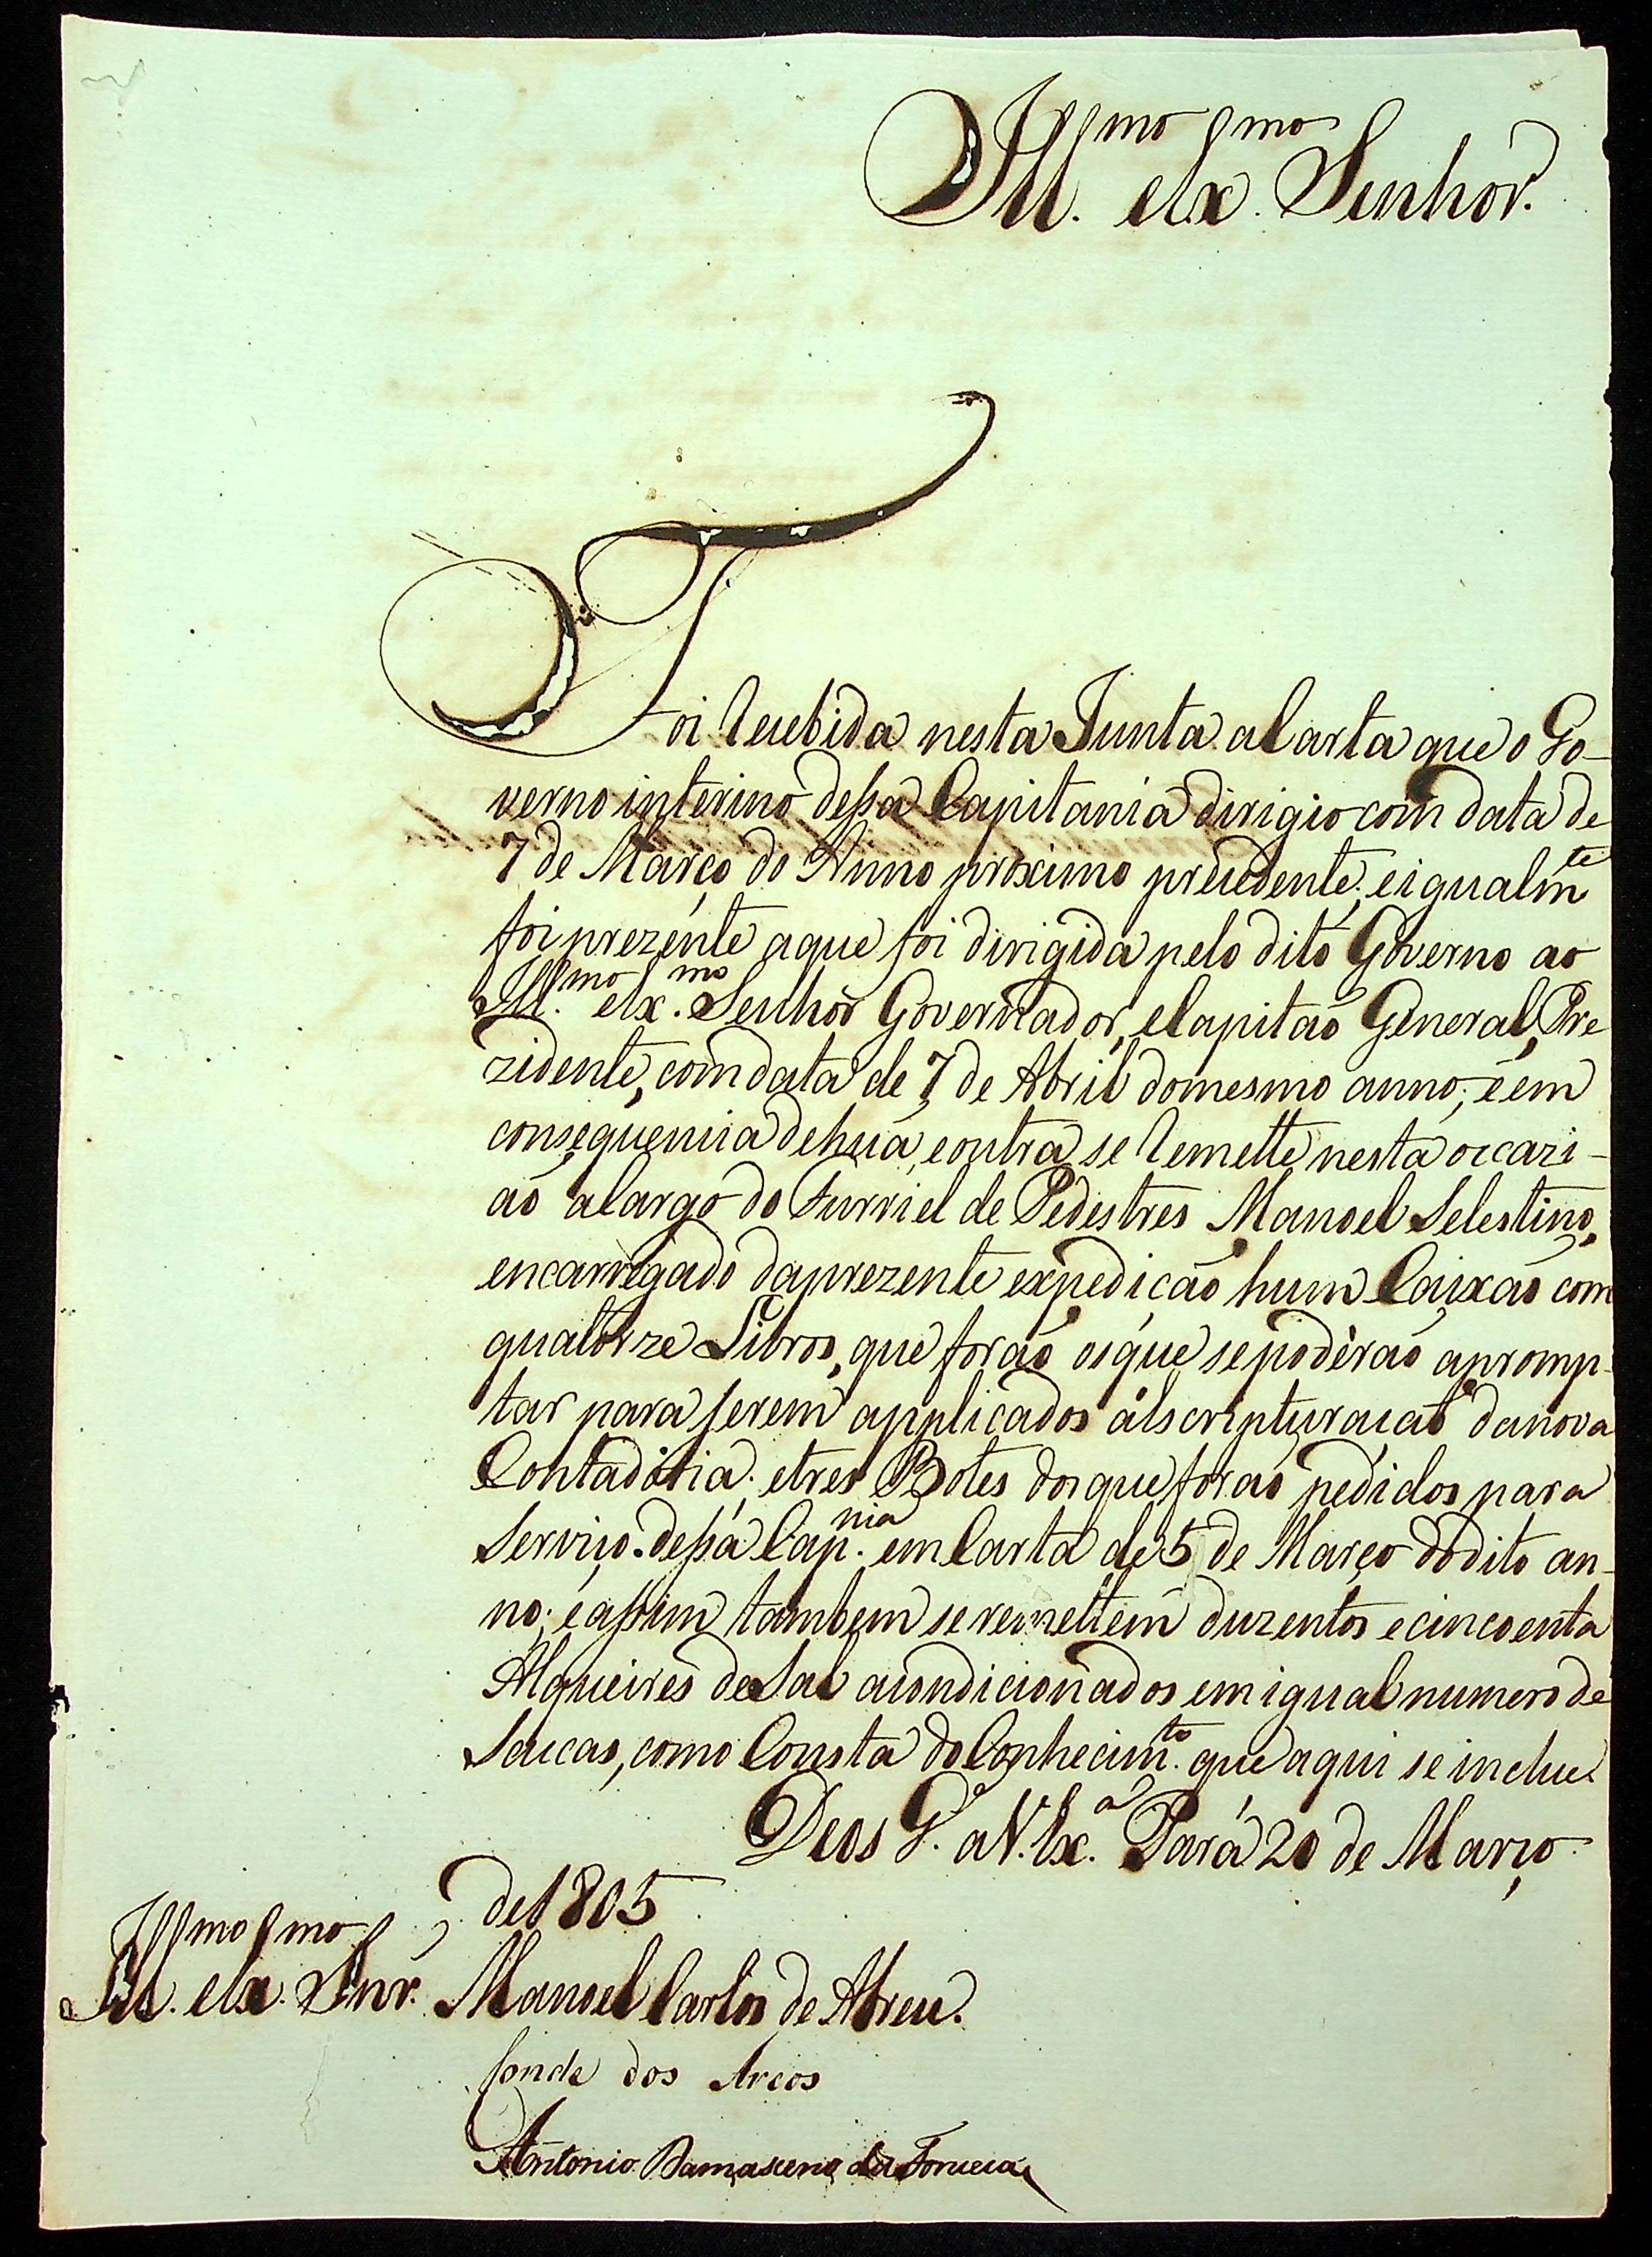 Ill.mo e Ex.mo Senhor.
Foi Recebida nesta Junta a Carta que o Go-
verno interino dessa Capitania dirigio com data de
7 de Março do Anno proximo precedente; e igualm.te
foi prezente a que foi dirigida pelo dito Governo ao
Ill.mo e Ex.mo Senhor Governador, e Capitaõ General, Pre
zidente, com data de 7 de Abril do mesmo anno; e em
consequencia de huã, e outra se Remette nesta occazi-
aõ a Cargo do Furriel de Pedestres Manoel Selestino,
encarregado da prezente expediçaõ hum Caixaõ com
quatorze Livros, que foraõ os que se poderaõ apromp-
tar para serem applicados á Escripturaçaõ da nova
Contadoria; e tres Botes dos que foraõ pedidos para
Serviço dessa Cap.nia em Carta de 5 de Março do dito an-
no; e assim tambem se remettem duzentos e cincoenta
Alqueires de Sal acondicionados em igual numero de
Saccas, como Consta do Conhecim.to que aqui se inclue.
Deos G.e a V. Ex.a Pará 20 de Março
de 1805
Ill.mo e Ex.mo Snr. Manoel Carlos de Abreu.
Conde dos Arcos
Antonio Damasceno da Fonceca